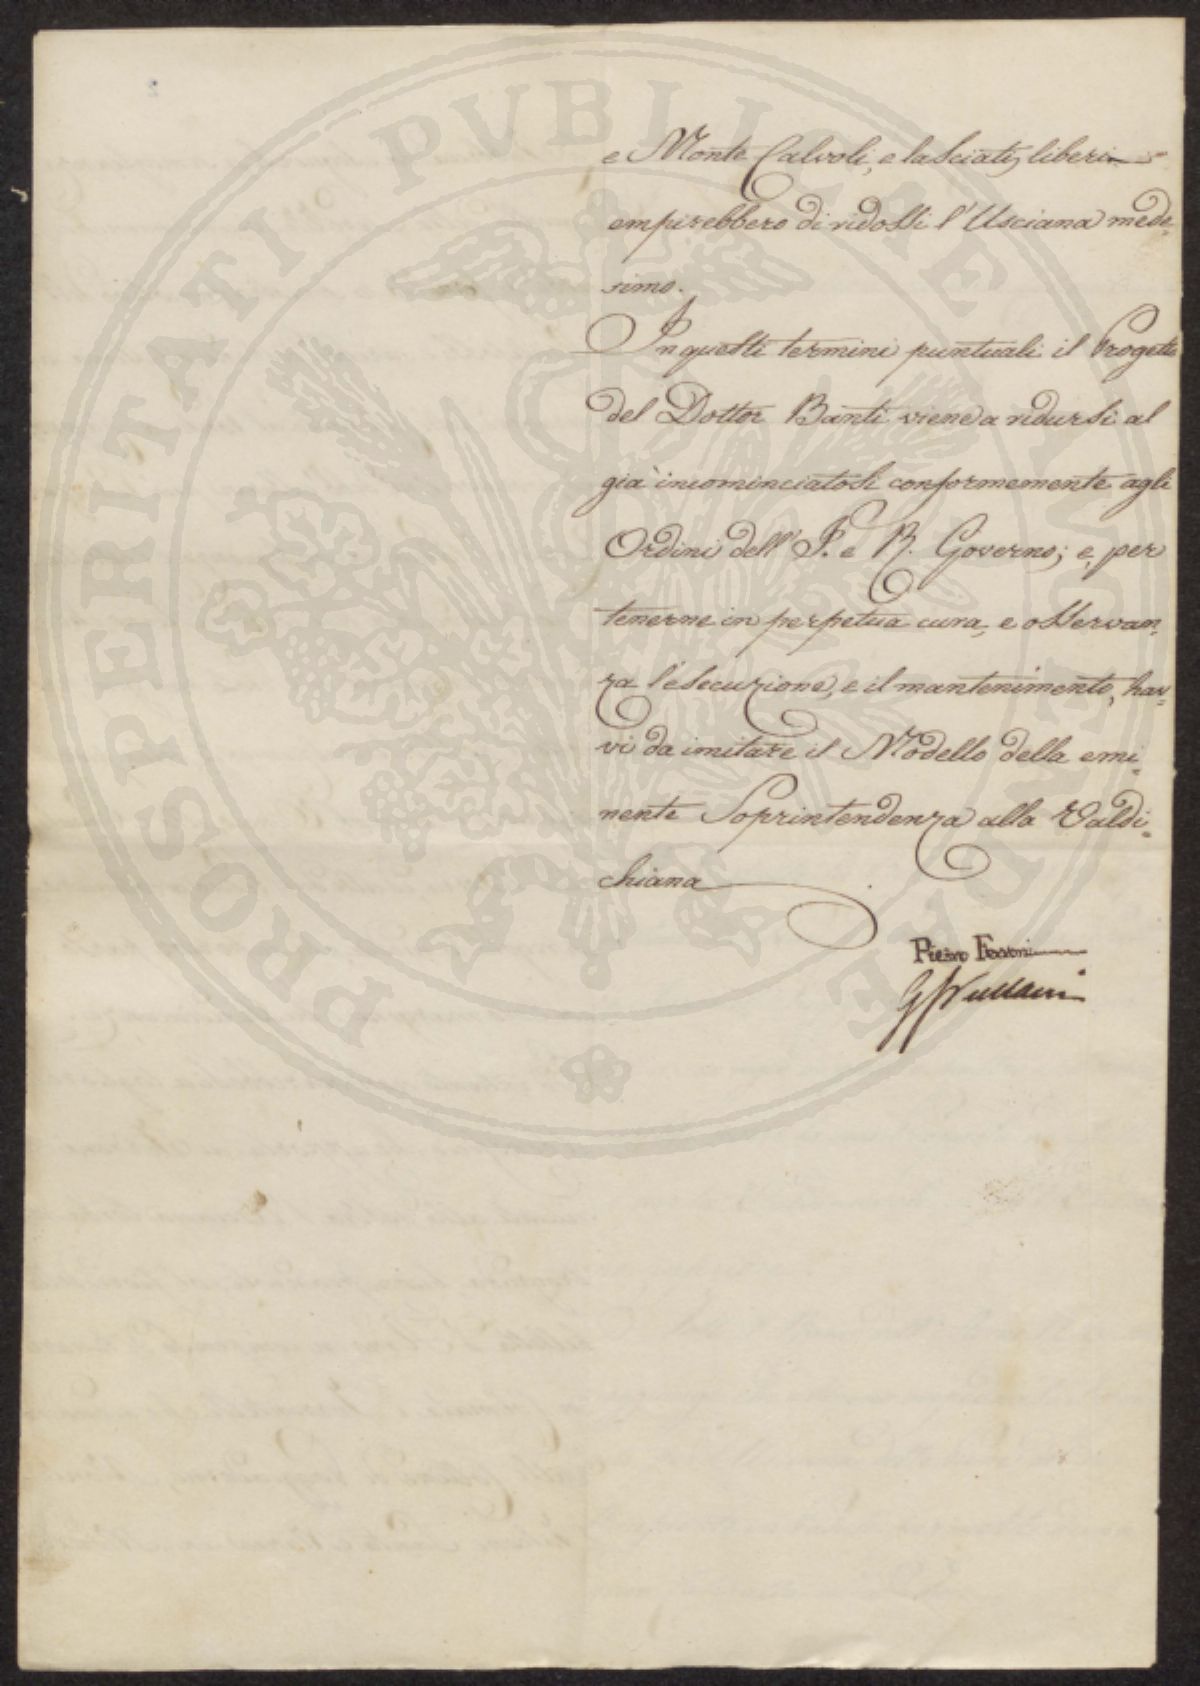 e Monte Calvoli, e lasciati liberi
empirebbero di ridossi l'Usciana mede=
simo.
In questi termini puntuali il Progetto
del Dottor Banti viene a ridursi al
già incominciatosi conformemente agli
Ordini dell'I. e R. Governo; e, per
tenerne in perpetua cura, e osservan=
za l'esecuzione, e il mantenimento, hav=
vi da imitare il Modello della emi=
nente Soprintendenza alla Valdi=
chiana
Pietro Ferroni
PROSPERITATI PUBLICAE